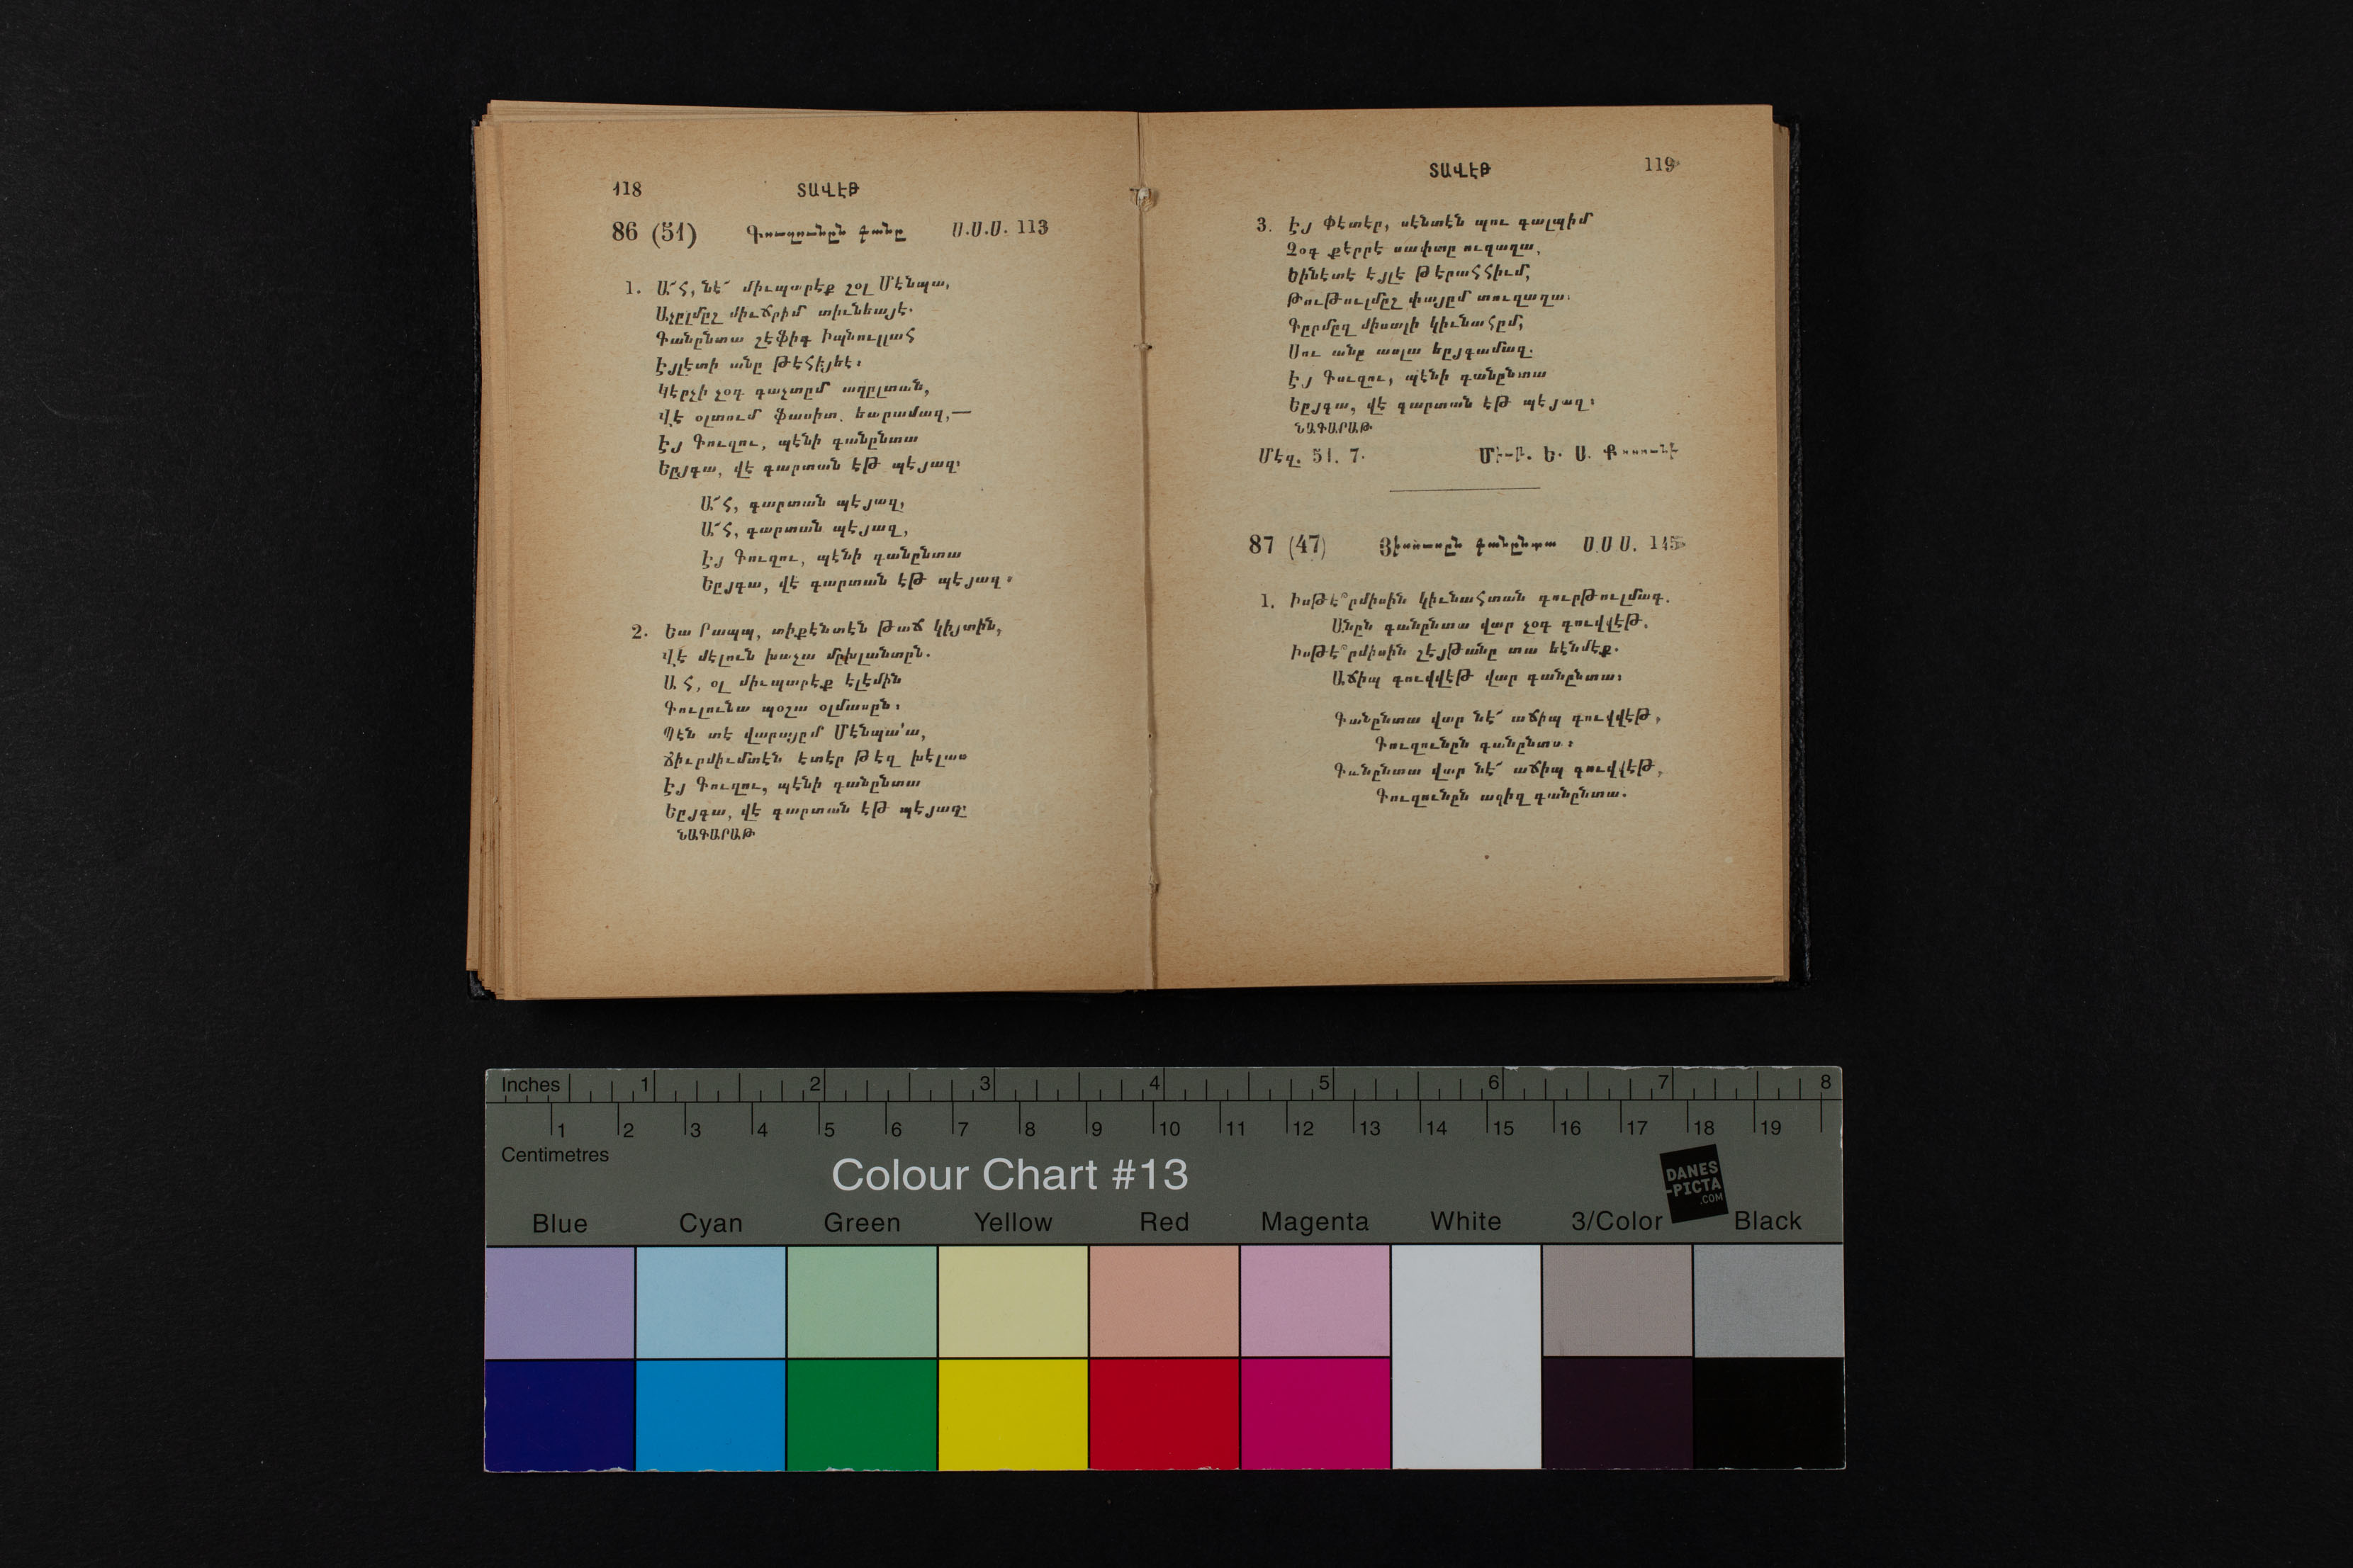 118
ՏԱՎԷԹ
86 (51) Գուզունըն գանը Ս.Ս.Ս. 113
1. Ա՜Հ, նէ՜ միւպարէք շօլ Մէնպա,
Աչըլմըշ միւճրիմ տիւնեայէ.
Գանընտա շէֆիգ Իպնուլլահ
Էյլէտի անը թէհիյեէ։
Կէրչի չօգ գաչտըմ աղըլտան,
Վէ օլտում ֆասիտ, եարամազ,—
Էյ Գուզու, պէնի գանընտա
Եըյգա, վէ գարտան էթ պէյազ։
Ա՜Հ, գարտան պէյազ,
Ա՜Հ, գարտան պէյազ,
Էյ Գուզու, պէնի գանընտա
Եըյգա, վէ գարտան էթ պէյազ։
2. Եա Րապպ, տիքէնտէն թաճ կիյտին,
Վէ մէլուն խաչա մըխլանտըն.
ԱՀ, օլ միւպարէք էլէմին
Գուլունա պօշա օլմասըն։
Պէն տէ վարայըմ Մէնպա՛ա,
Ճիւրմիւմտէն էտէր թէզ խէլաս
Էյ Գուզու, պէնի գանընտա
Եըյգա, վէ գարտան էթ պէյազ։
ՆԱԳԱՐԱԹ
ՏԱՎԷԹ
119
3. Էյ Փէտէր, սէնտէն պու գալպիմ
Չօգ քէրրէ սափտը ուզաղա,
Եինէտէ էյլէ թէրահհիւմ,
Թութուլմըշ փայըմ տուզաղա։
Գըրմըզ միսալի կիւնահըմ,
Սու անը ասլա եըյգամազ.
Էյ Գուզու, պէնի գանընտա
Եըյգա, վէ գարտան էթ պէյազ։
ՆԱԳԱՐԱԹ
Մէզ. 51. 7. Ե. Ա.
87 (47) Յիսուսըն գանընտա Ս.Ս.Ս. 145
1. Իսթէ՞րմիսին կիւնահտան գուրթուլմագ.
Անըն գանընտա վար չօգ գուվվէթ,
Իսթէ՞րմիսին շէյթանը տա եէնմէք.
Աճիպ գուվվէթ վար գանընտա։
Գանընտա վար նէ՜ աճիպ գուվվէթ,
Գուզունըն գանընտա։
Գանընտա վար նէ՜ աճիպ գուվվէթ,
Գուզունըն ազիզ գանընտա.
Inches 1 2 3 4 5 6 7 8
1 2 3 4 5 6 7 8 9 10 11 12 13 14 15 16 17 18 19
Centimetres
Colour Chart #13
DANES
-PICTA
.COM
Blue Cyan Green Yellow Red Magenta White 3/Color Black